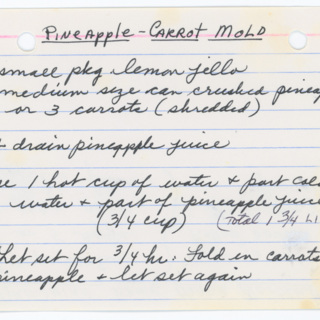 PINEAPPLE - CARROT MOLD
small pkg lemon jello
medium size can crushed pineap
or 3 carrots (shredded)
drain pineapple juice
1 hot cup of water + part cold
water + part of pineapple juice
(3/4 cup) (Total 1 3/4
Let set for 3/4 hr. Fold in carrots
pineapple + let set again